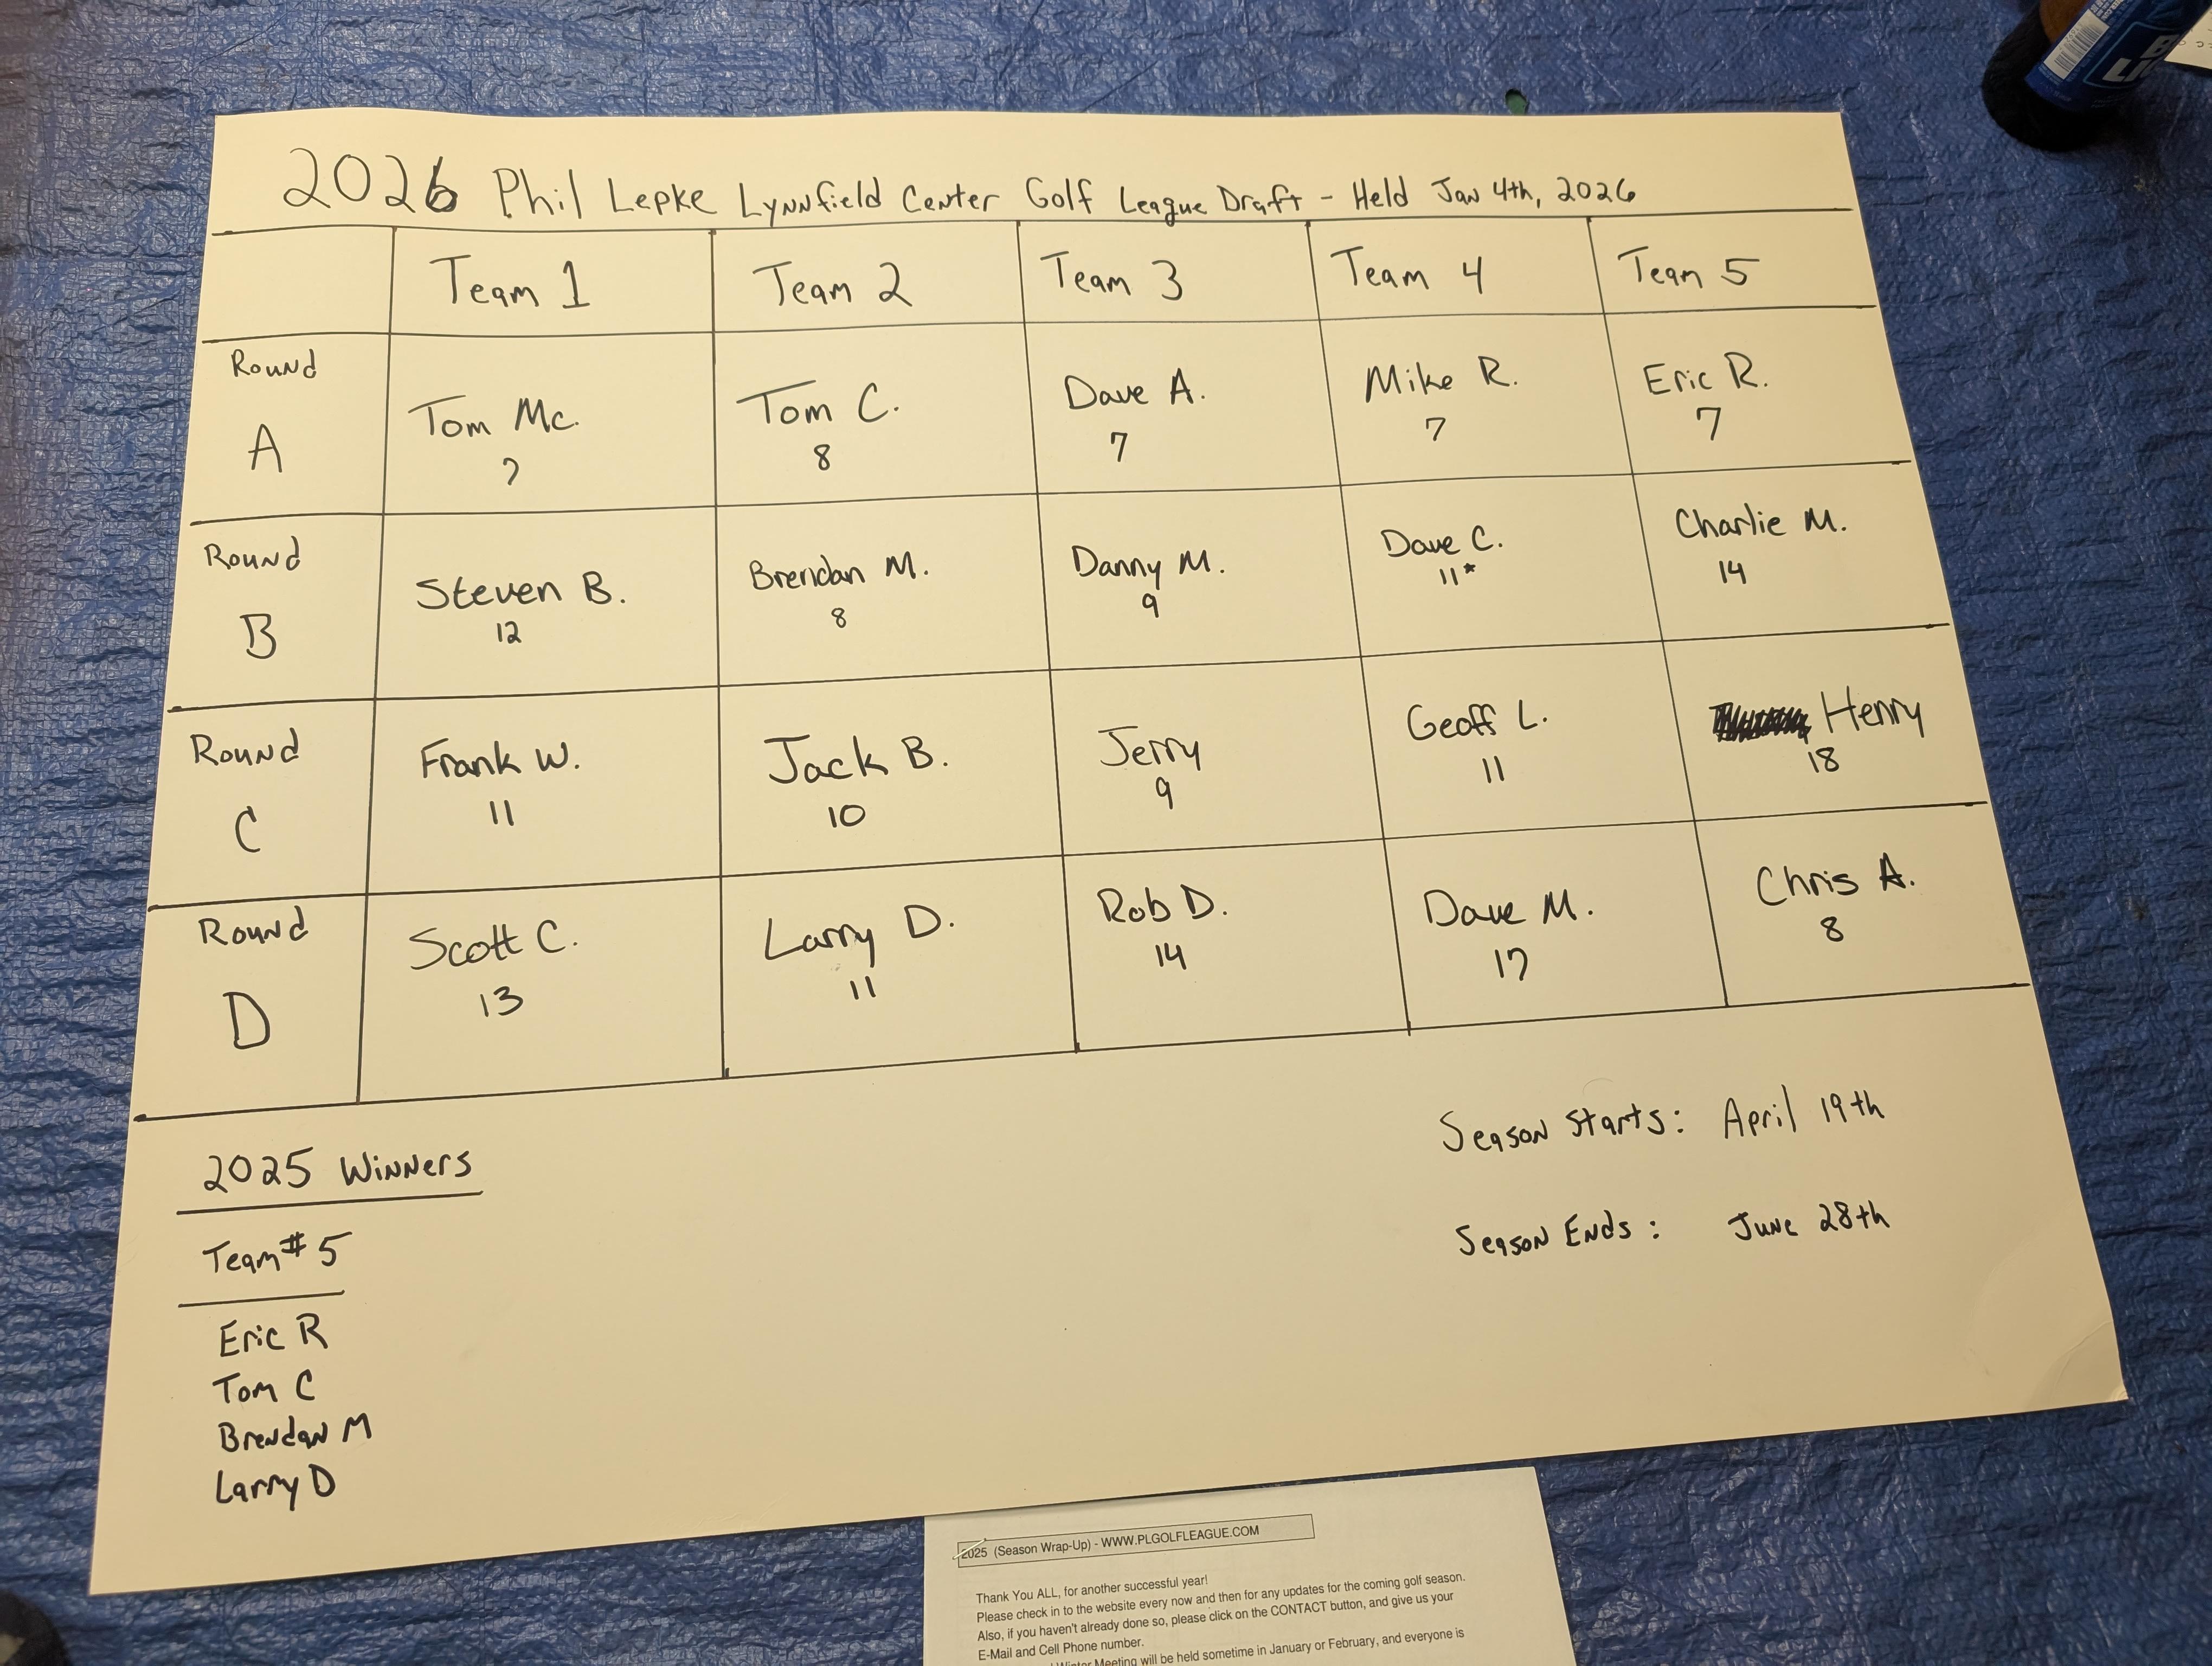 2026 Phil Lepke Lynnfield Center Golf League Draft - Held Jan 4th, 2026
Team 1 Team 2 Team 3 Team 4 Team 5
Round A
Tom Mc. Tom C. Dave A. Mike R. Eric R.
7 8 7 7 7
Round B
Steven B. Brendan M. Danny M. Dave C. Charlie M.
12 8 9 11* 14
Round C
Frank W. Jack B. Jerry Geoff L. Henry
11 10 9 11 18
Round D
Scott C. Larry D. Rob D. Dave M. Chris A.
13 11 14 17 8
Season Starts: April 19th
Season Ends: June 28th
2025 Winners
Team #5
Eric R
Tom C
Brendan M
Larry D
2025 (Season Wrap-Up) - WWW.PLGOLFLEAGUE.COM
Thank You ALL, for another successful year!
Please check in to the website every now and then for any updates for the coming golf season.
Also, if you haven't already done so, please click on the CONTACT button, and give us your
E-Mail and Cell Phone number.
Winter Meeting will be held sometime in January or February, and everyone is